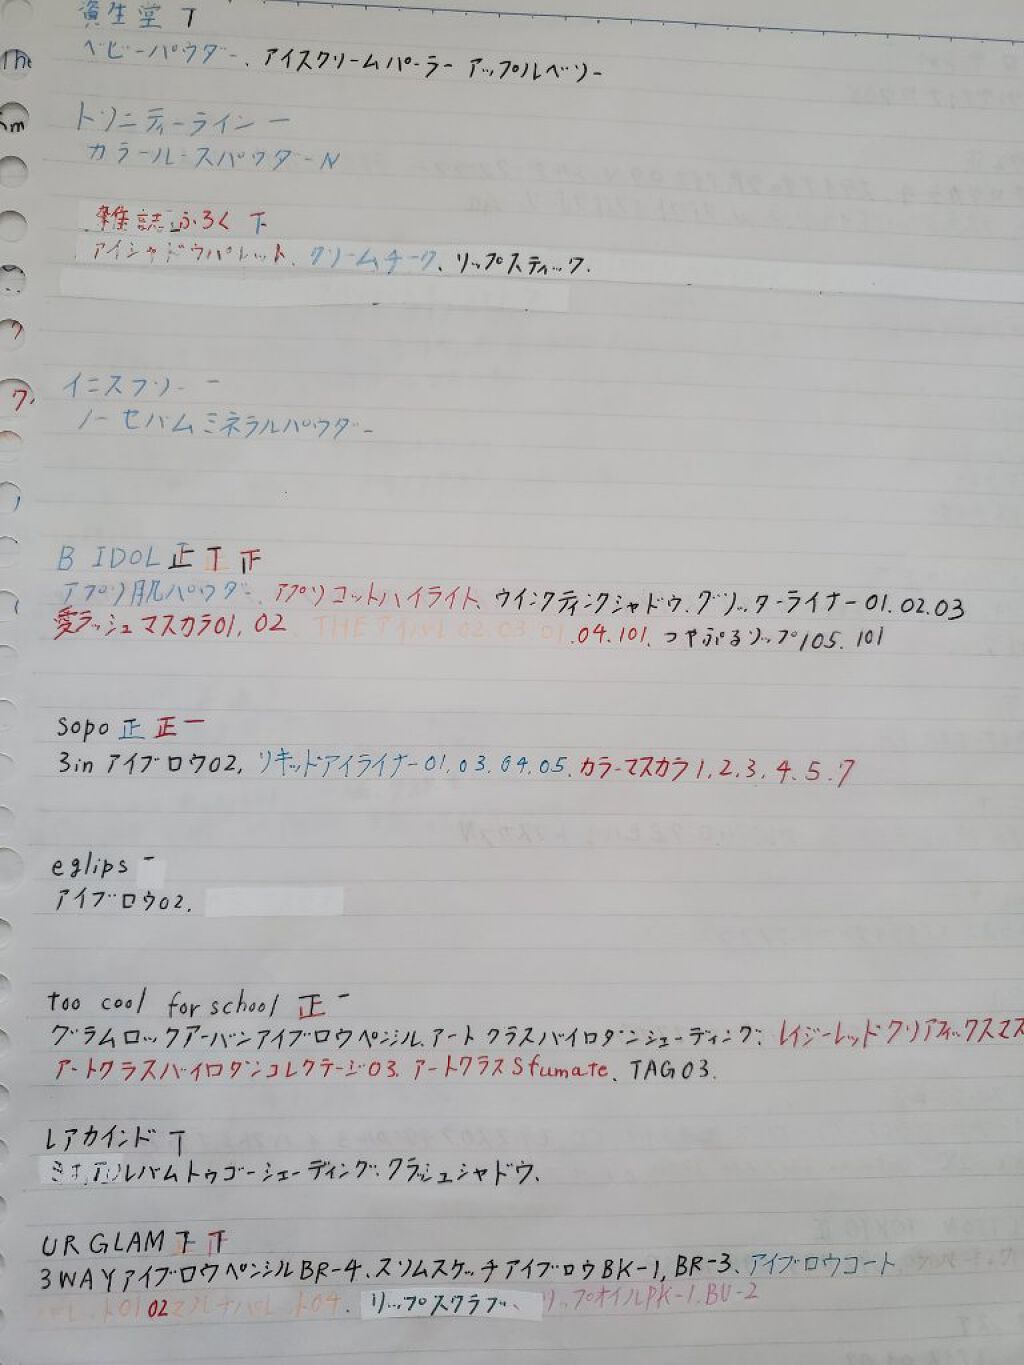 資生堂 T
ベビーパウダー、アイスクリームパーラー アップルベリー
トリニティーライン 一
カラールースパウダーN
雑誌ふろく 下
アイシャドウパレット、クリームチーク、リップスティック.
イニスフリー 一
ノーセバムミネラルパウダー
B IDOL 正 T 正
アプリ肌パウダー、アプリコットハイライト、ウインクティンクシャドウ、グリッターライナー01.02.03
愛ラッシュマスカラ01, 02、THEアイパレ02.03.01.04.101、つやぷるリップ105.101
sopo 正 正一
3in アイブロウ02, リキッドアイライナー01.03.04.05、カラーマスカラ1.2.3.4.5.7
eglips 一
アイブロウ02.
too cool for school 正 一
グラムロックアーバンアイブロウペンシル、アートクラスバイロダンシェーディング、レイジーレッドクリアフィックスマス
アートクラスバイロダンコレクテージ03. アートクラスSfumate、TAG03.
レアカインド T
アルバムトゥゴーシェーディング、クラッシュシャドウ.
UR GLAM 下 下
3WAYアイブロウペンシルBR-4、スリムスケッチアイブロウBK-1, BR-3、アイブロウコート
01 02 04、リップスクラブ、リップオイルPK-1.BU-2